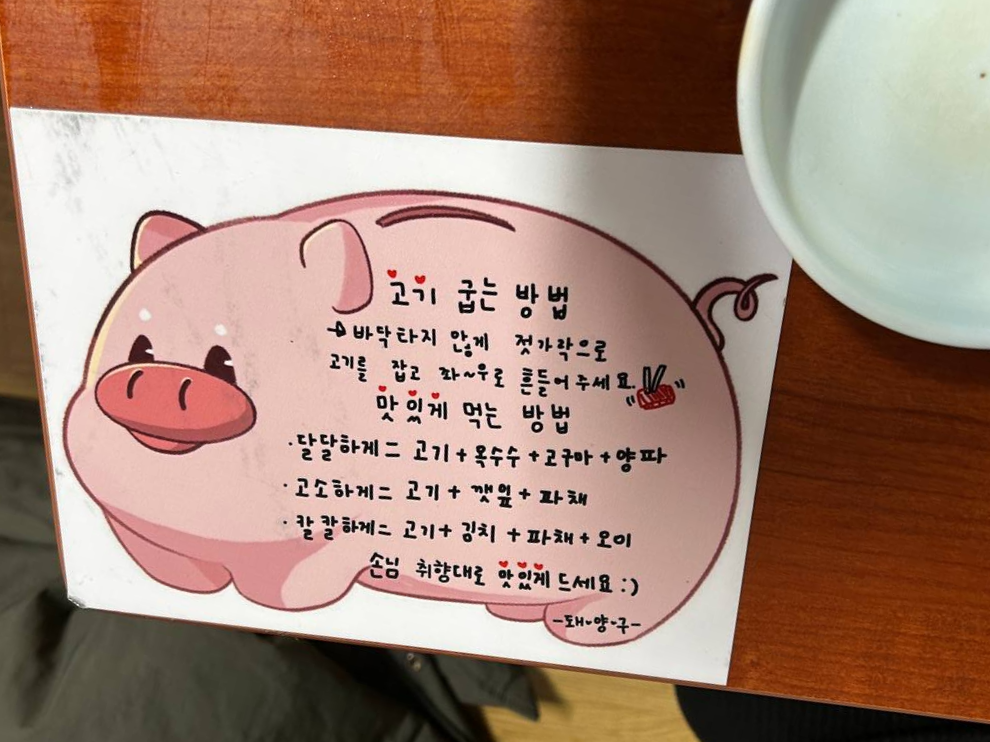 고기 굽는 방법
→바닥타지 않게 젓가락으로
고기를 잡고 좌~우로 흔들어주세요.
맛있게 먹는 방법
·달달하게= 고기+옥수수+고구마+양파
·고소하게= 고기+깻잎+파채
·칼칼하게= 고기+김치+파채+오이
손님 취향대로 맛있게 드세요 :)
-돼-양-구-